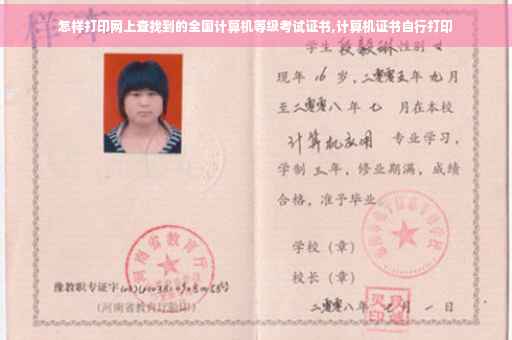 怎样打印网上查找到的全国计算机等级考试证书,计算机证书自行打印
样本
学生 段毅琳 性别 女
现年 16 岁,二零零五年 九月
至二零零八年 七 月在本校
计算机应用 专业学习,
学制 三 年,修业期满,成绩
合格,准予毕业
学校(章)
校长(章)
二零零八年 七 月 一 日
河南省教育厅
豫教职专证字
(河南省教育厅验印)